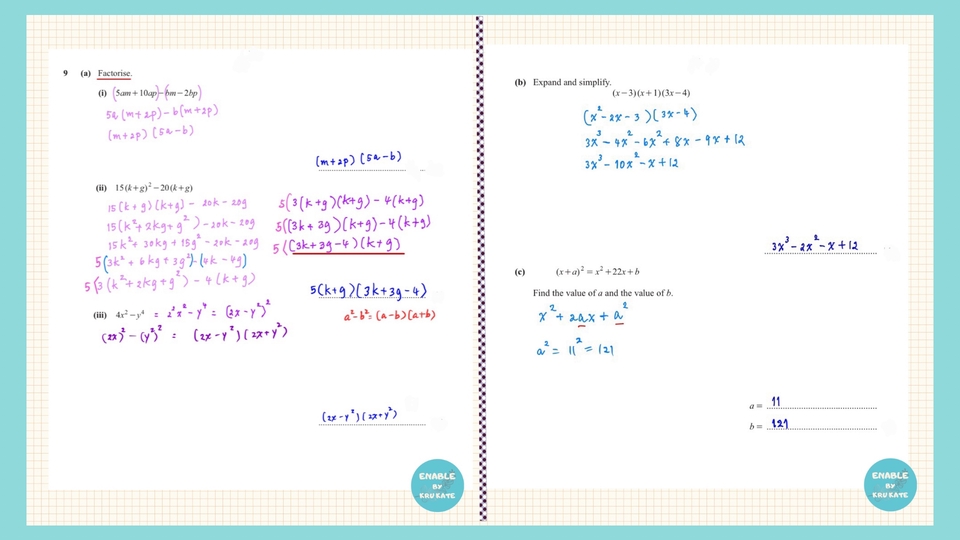 9 (a) Factorise.
(i) (5am + 10ap) - (bm - 2bp)
5a (m+2p) - b (m+2p)
(m+2p) (5a-b)
(m+2p) (5a-b)
(ii) 15(k+g)² - 20(k+g)
15(k+g)(k+g) - 20k - 20g
15(k²+2kg+g²) - 20k - 20g
15k² + 30kg + 15g² - 20k - 20g
5(3k² + 6kg + 3g²) - (4k - 4g)
5(3(k²+2kg+g²) - 4(k+g)
5(3(k+g)(k+g) - 4(k+g)
5((3k+3g)(k+g) - 4(k+g)
5((3k+3g-4)(k+g)
5(k+g)(3k+3g-4)
(iii) 4x² - y⁴ = 2²x² - y⁴ = (2x-y²)²
a²-b² = (a-b)(a+b)
(2x)² - (y²)² = (2x-y²)(2x+y²)
(2x-y²)(2x+y²)
ENABLE
BY
KRUKATE
(b) Expand and simplify.
(x-3)(x+1)(3x-4)
(x²-2x-3)(3x-4)
3x³ - 4x² - 6x² + 8x - 9x + 12
3x³ - 10x² - x + 12
3x³ - 2x² - x + 12
(c) (x+a)² = x² + 22x + b
Find the value of a and the value of b.
x² + 2ax + a²
a² = 11² = 121
a = 11
b = 121
ENABLE
BY
KRUKATE